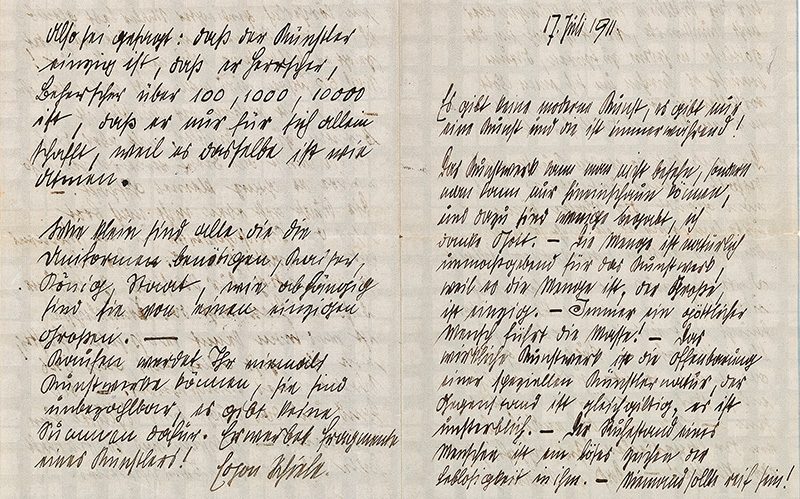 Also sei gesagt: daß der Künstler
einzig ist, daß er Herrscher,
Beherscher über 100, 1000, 10000
ist, daß er nur für sich allein
schafft, weil es dasselbe ist wie
Atmen.
Wie klein sind alle die die
Uniformen benötigen, Kaiser,
König, Staat, wie abhängig
sind sie von einen einzigen
Großen. —
Kaufen werdet Ihr niemals
Kunstwerke können, sie sind
unbezahlbar, es gibt keine
Summen dafür. Erwerbet Fragmente
eines Künstlers!
Egon Schiele.
17. Juli 1911
Es gibt keine moderne Kunst, es gibt nur
eine Kunst und die ist immerwährend!
Das Kunstwerk kann man nicht besehen, sondern
man kann nur hineinschaun können,
und dazu sind wenige begabt, ich
danke Gott. — Die Menge ist natürlich
unmasgebend für das Kunstwerk,
weil es die Menge ist, der Große
ist einzig. — Immer ein göttlicher
Mensch führt die Masse! — Das
wirkliche Kunstwerk ist die Offenbarung
einer speziellen Künstlernatur, der
Gegenstand ist gleichgiltig, er ist
unsterblich. — Der Ruhestand eines
Menschen ist ein böses Zeichen der
Leblosigkeit in ihm. — Niemand sollte reif sein!